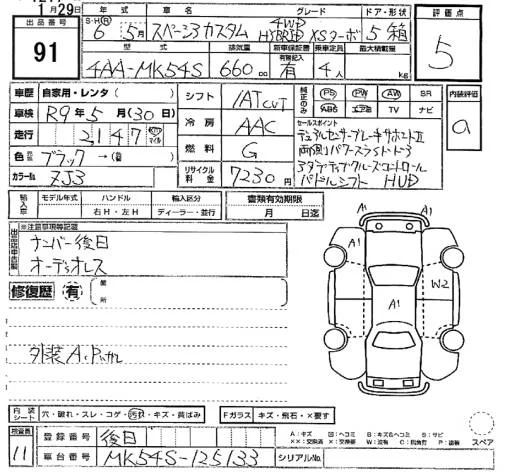 1月29日
出品番号 91
年式 S・H・R 6年5月
車名 スペーシアカスタム
グレード 4WD HYBRID XSターボ
ドア・形状 5 箱
評価点 5
型式 4AA-MK54S
排気量 660cc
新車保証書 有 有簡記入
乗車定員 4人
最大積載量 kg
車歴 自家用・レンタ( )
車検 R9年5月(30日)
走行 2,147 km マイル
色 ブラック→( 番)
カラーNo. ZJ3
シフト IAT CVT
冷房 AAC
燃料 G
リサイクル料金 7230円
純正のみ PS PW AW SR
ABS エアB TV ナビ
セールスポイント
デュアルセンサーブレーキサポートII
両側パワースライドドア
アダプティブクルーズコントロール
パドルシフト HUD
内装評価 a
輸入車 モデル年式 年 ハンドル 右H・左H 輸入区分 ディーラー・並行
書類有効期限 月 日迄
※注意事項等記載
ナンバー後日
オーディオレス
修復歴 有 箇所
外装A.Pux
A1
A1
A1
W2
内装シート 穴・破れ・スレ・コゲ・汚れ・キズ・黄ばみ
Fガラス キズ・飛石・×要す
スペア
検査員 11
登録番号 後日
車台番号 MK54S-125133
シリアルNo.
A:キズ U:ヘコミ B:キズ&ヘコミ S:サビ
XX:交換済 X:交換要 W:波有 C:腐食 P:塗装